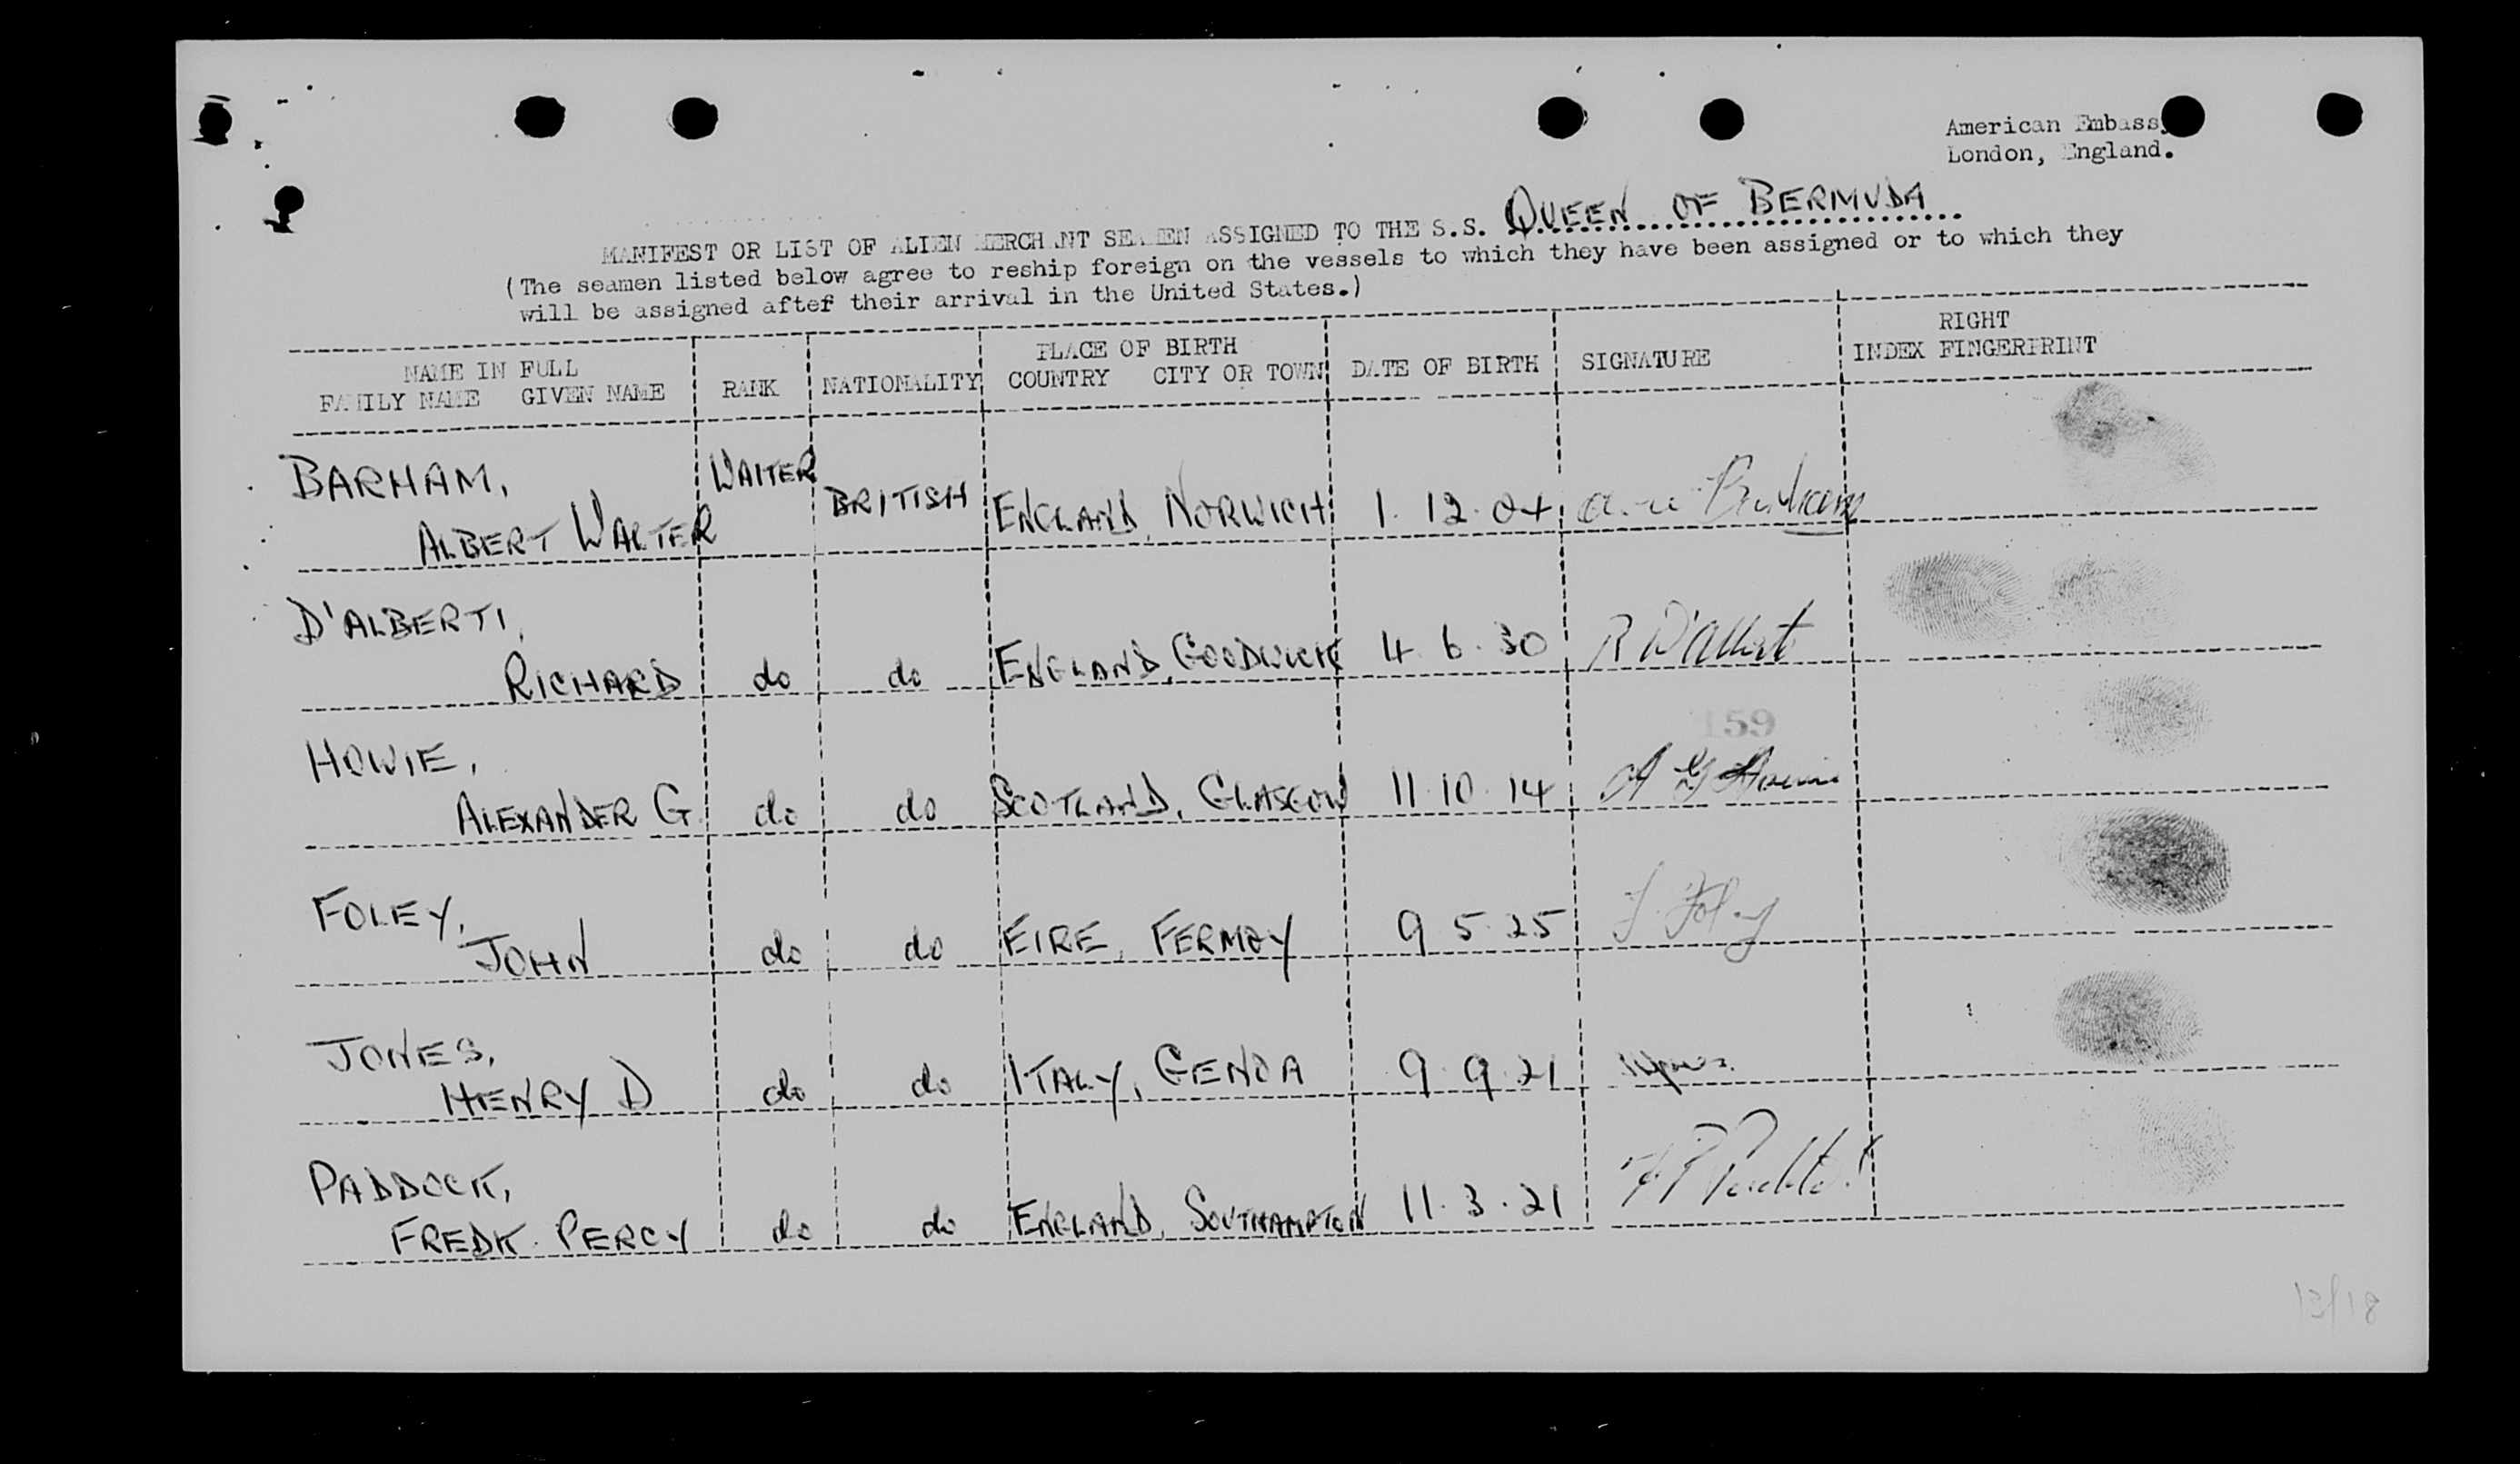 American Embassy
London, England.
MANIFEST OR LIST OF ALIEN MERCHANT SEAMEN ASSIGNED TO THE S.S. QUEEN OF BERMUDA
(The seamen listed below agree to reship foreign on the vessels to which they have been assigned or to which they
will be assigned aftef their arrival in the United States.)
NAME IN FULL
FAMILY NAME GIVEN NAME RANK NATIONALITY PLACE OF BIRTH COUNTRY CITY OR TOWN DATE OF BIRTH SIGNATURE RIGHT INDEX FINGERPRINT
BARHAM,
ALBERT WALTER WAITER BRITISH ENGLAND, NORWICH 1. 12. 04 Barham
D'ALBERTI,
RICHARD do do ENGLAND, GOODWICK 4 6. 30 R D'Alberti
159
HOWIE,
ALEXANDER G. do do SCOTLAND, GLASGOW 11. 10. 14 A G Howie
FOLEY,
JOHN do do EIRE, FERMOY 9 5. 25 J. Foley
JONES,
HENRY D do do ITALY, GENOA 9. 9. 21
PADDOCK,
FREDK. PERCY do do ENGLAND, SOUTHAMPTON 11. 3. 21 F P Paddock